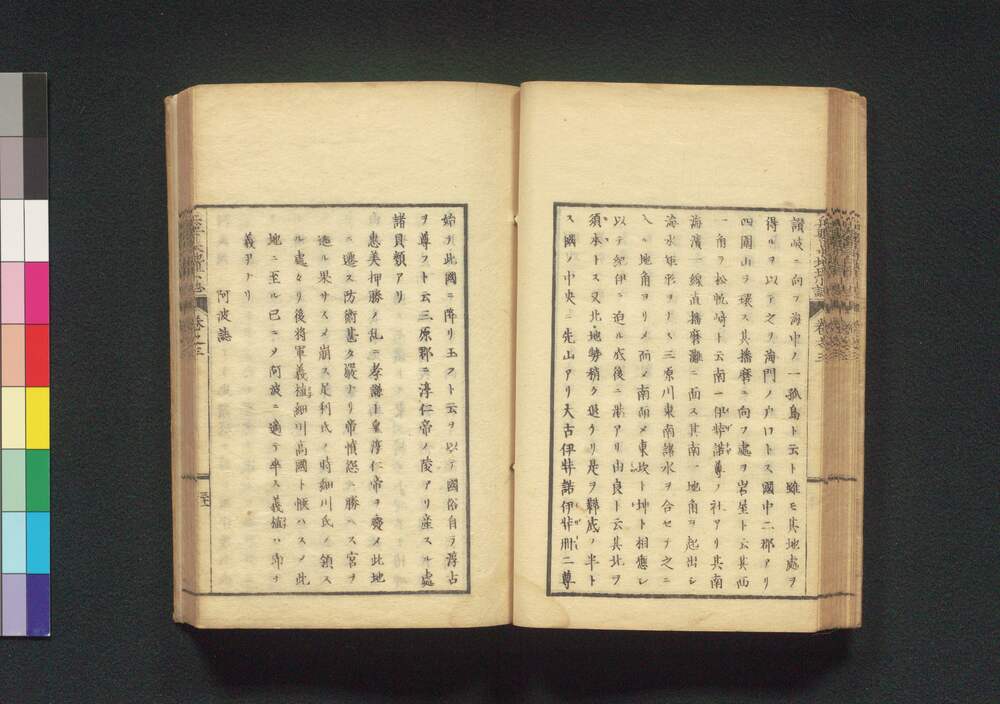 讃岐ニ向フ海中ノ一孤島ト云ト雖モ其地處ヲ
得ルヲ以テ之ヲ海門ノ戸口トス國中二郡アリ
四圍山ヲ環ス其播磨ニ向フ處ヲ岩屋ト云其西
一角ヲ松帆崎ト云南一伊弉諾尊ノ社アリ其南
海濱一線直播磨灘ニ面ス其南一地角ヲ起出シ
海水矩形ヲ三原川東南諸水ヲ合セテ之ニ
入ル地角ヨリメ而メ南頭メ東坎ト坤ト相應シ
以テ紀伊ニ迫ル戍後ニ港アリ由良ト云其北ヲ
須本トス又北地勢稍ク退クリ是ヲ鞋底ノ半ト
ス國ノ中央ニ先山アリ大古伊弉諾伊弉冊二尊
始テ此國ニ降リ玉フト云ヲ以テ國俗自ラ淳古
ヲ尊フト云三原郡ニ淳仁帝ノ陵アリ産スル處
諸貝類アリ
惠美押勝ノ乱ニ孝謙上皇淳仁帝ヲ廢メ此地
ニ遷ス防衛甚タ嚴ナリ帝憤怒ニ勝ヘス宮ヲ
逃ル果サスメ崩ス足利氏ノ時細川氏ノ領ス
ル處タリ後將軍義植細川高國ト惬ハスメ此
地ニ至ル已ニメ阿波ニ適テ卒ス義植ハ即チ
義尹ナリ
阿波誌
卷之三